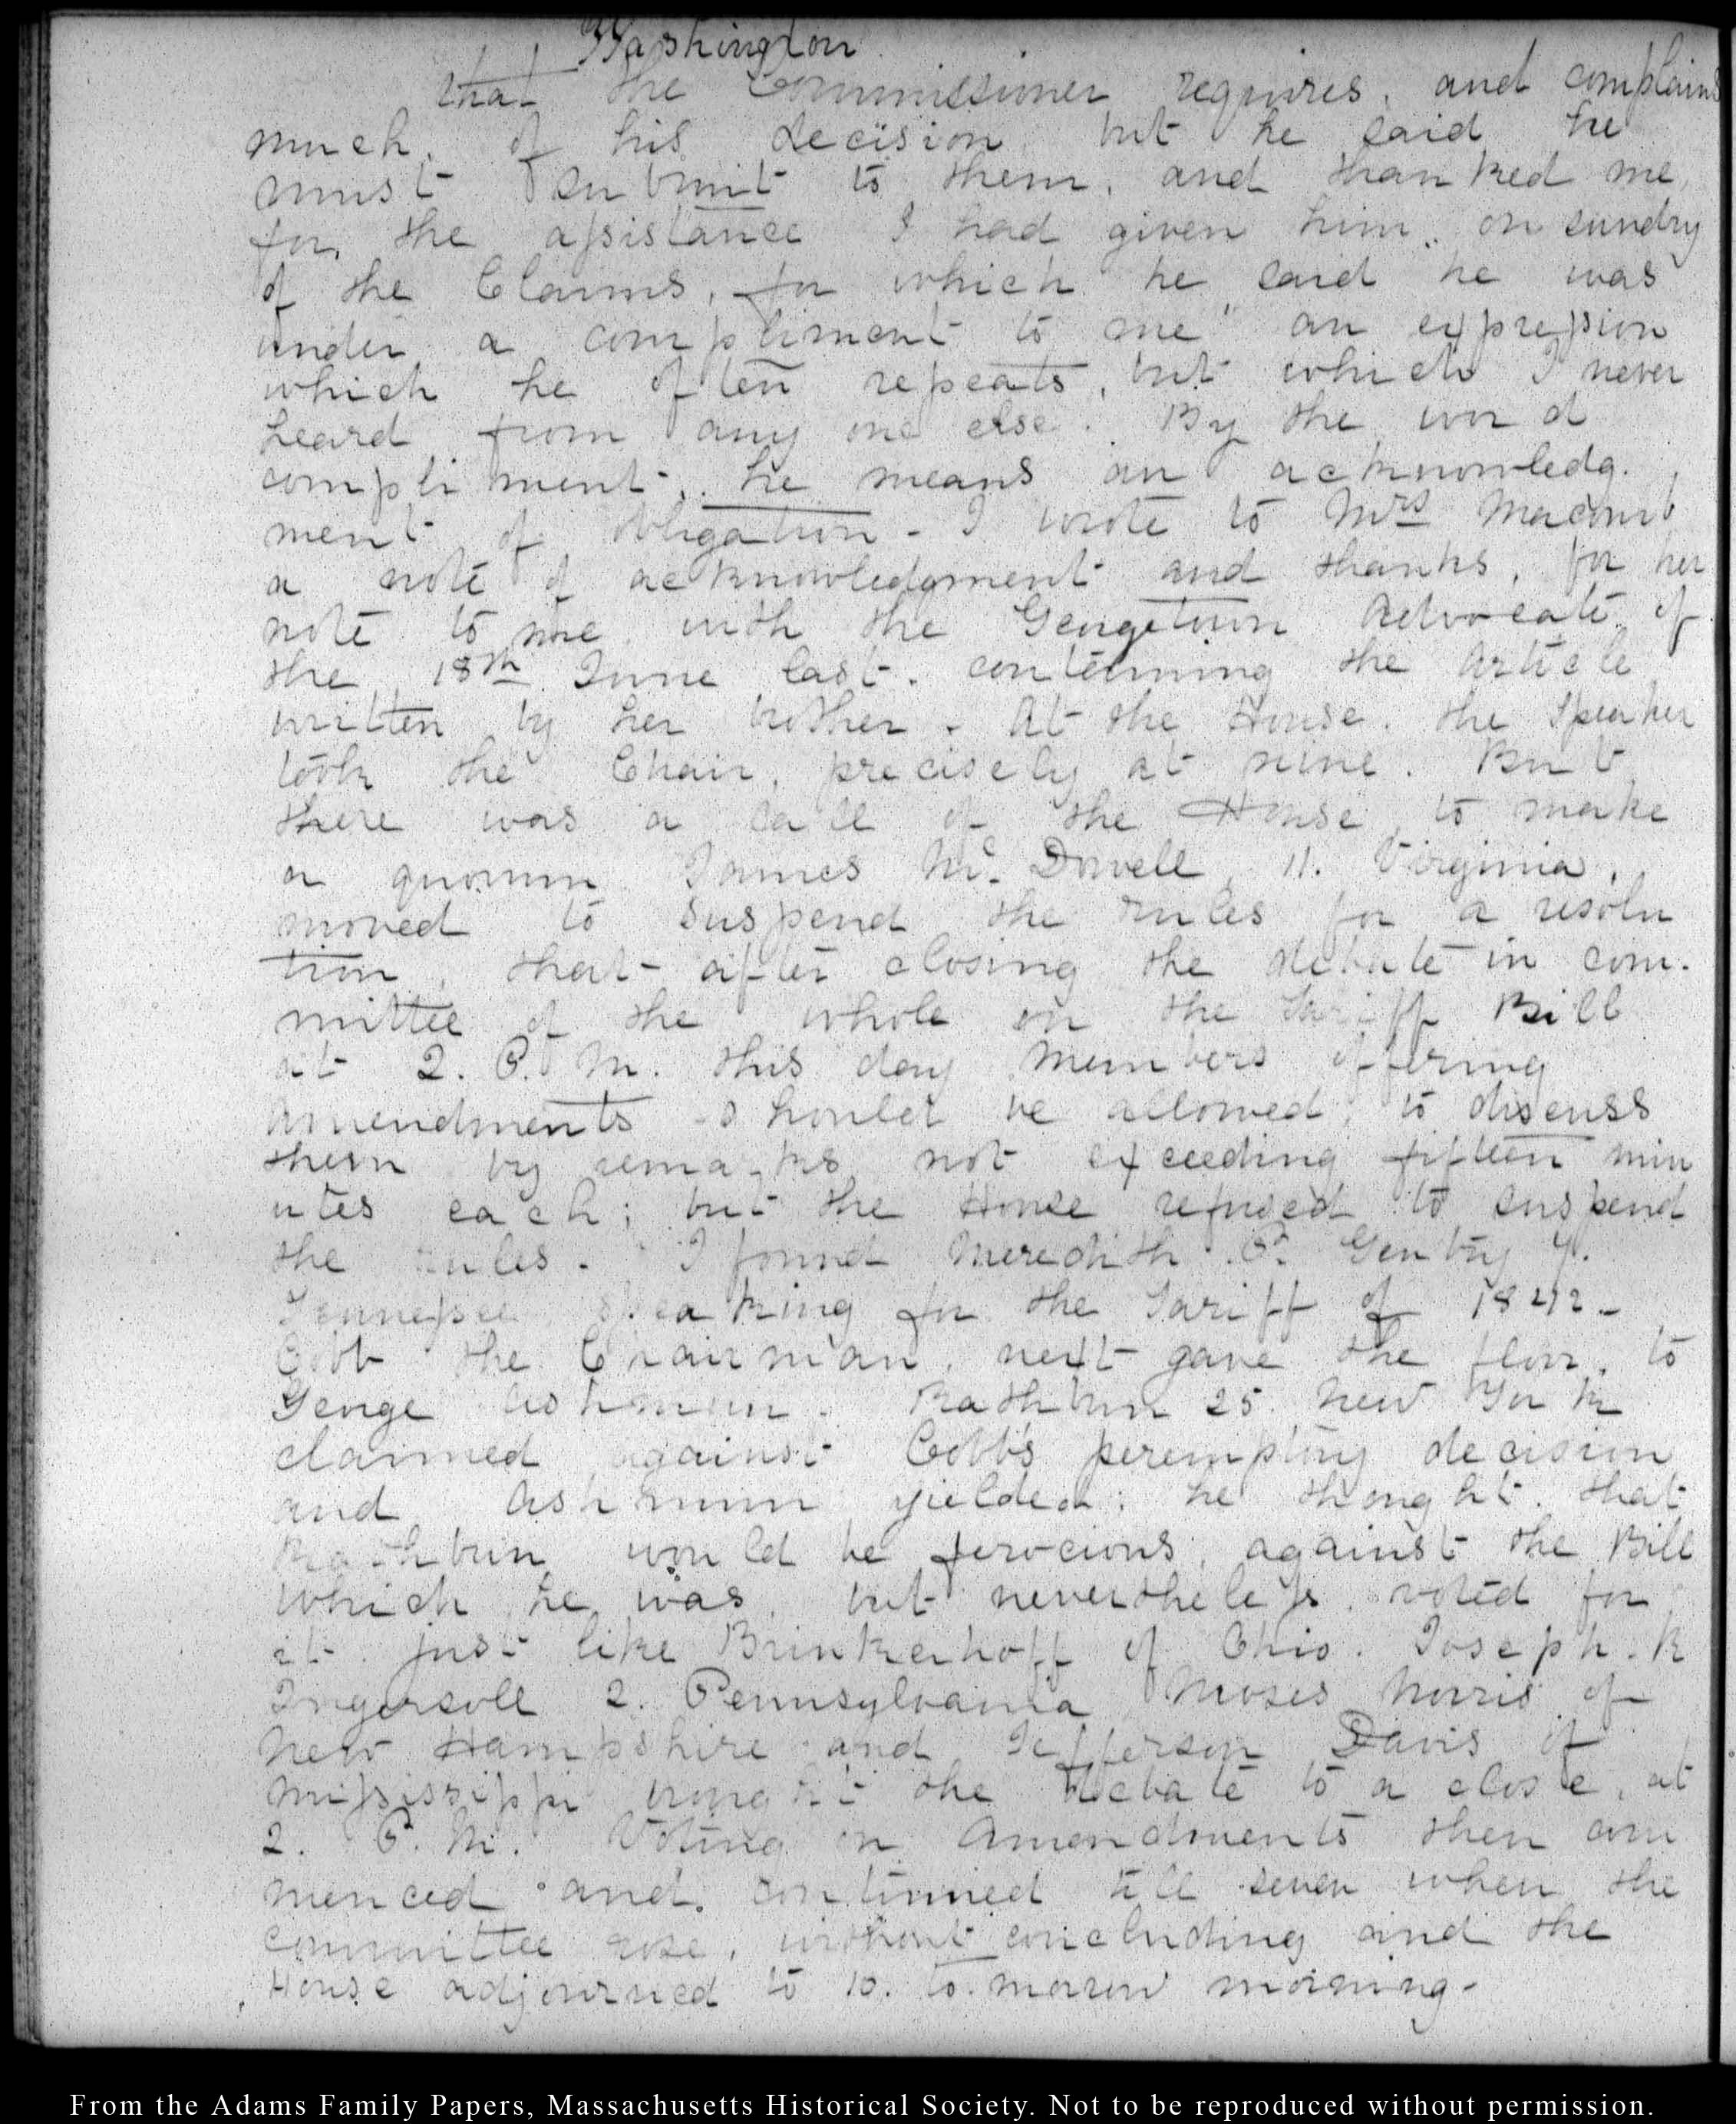 Washington
that the Commissioner requires, and complains
much, of his decision, but he said he
must submit to them, and thanked me,
for, the assistance I had given him, on sundry
of the Claims, for which he said he was
under a compliment to me" an expression
which he often repeats, but which I never
heard from any one else. By the word
compliment, he means an acknowledg.
ment of obligation - I wrote to Mrs Macomb
a note of acknowledgment and thanks, for her
note to me with the Georgetown Advocate of
the 18th June last. containing the article
written by her brother - At the House. the Speaker
took the Chair, precisely at nine. But
there was a call of the House, to make
a quorum James Mc. Dowell 11. Virginia,
moved to suspend the rules for a resolu
tion, that after closing the debate in com.
mittee of the whole on the Tariff Bill
at 2. P. M. this day members offering
amendments should be allowed, to discuss
them by remarks not exceeding fifteen min
utes each; but the House refused to suspend
the rules. I found Meredith P. Gentry 7.
Tennessee speaking for the Tariff of 1842 -
Cobb the Chairman, next gave the floor, to
George Ashmun. Rathbun 25. New York
claimed against Cobb's peremptory decision
and Ashmun yielded; he thought. that
Rathbun would be ferocious, against the Bill
which he was, but nevertheless, voted for
it. just like Brinkerhoff of Ohio. Joseph. R
Ingersoll 2. Pennsylvania Moses Norris of
New Hampshire and Jefferson Davis of
Mississippi brought the debate to a close, at
2. P. M. Voting on Amendments then com
menced and. continued till seven when the
committee rose, without concluding and the
House adjourned to 10. to-morrow morning -
From the Adams Family Papers, Massachusetts Historical Society. Not to be reproduced without permission.